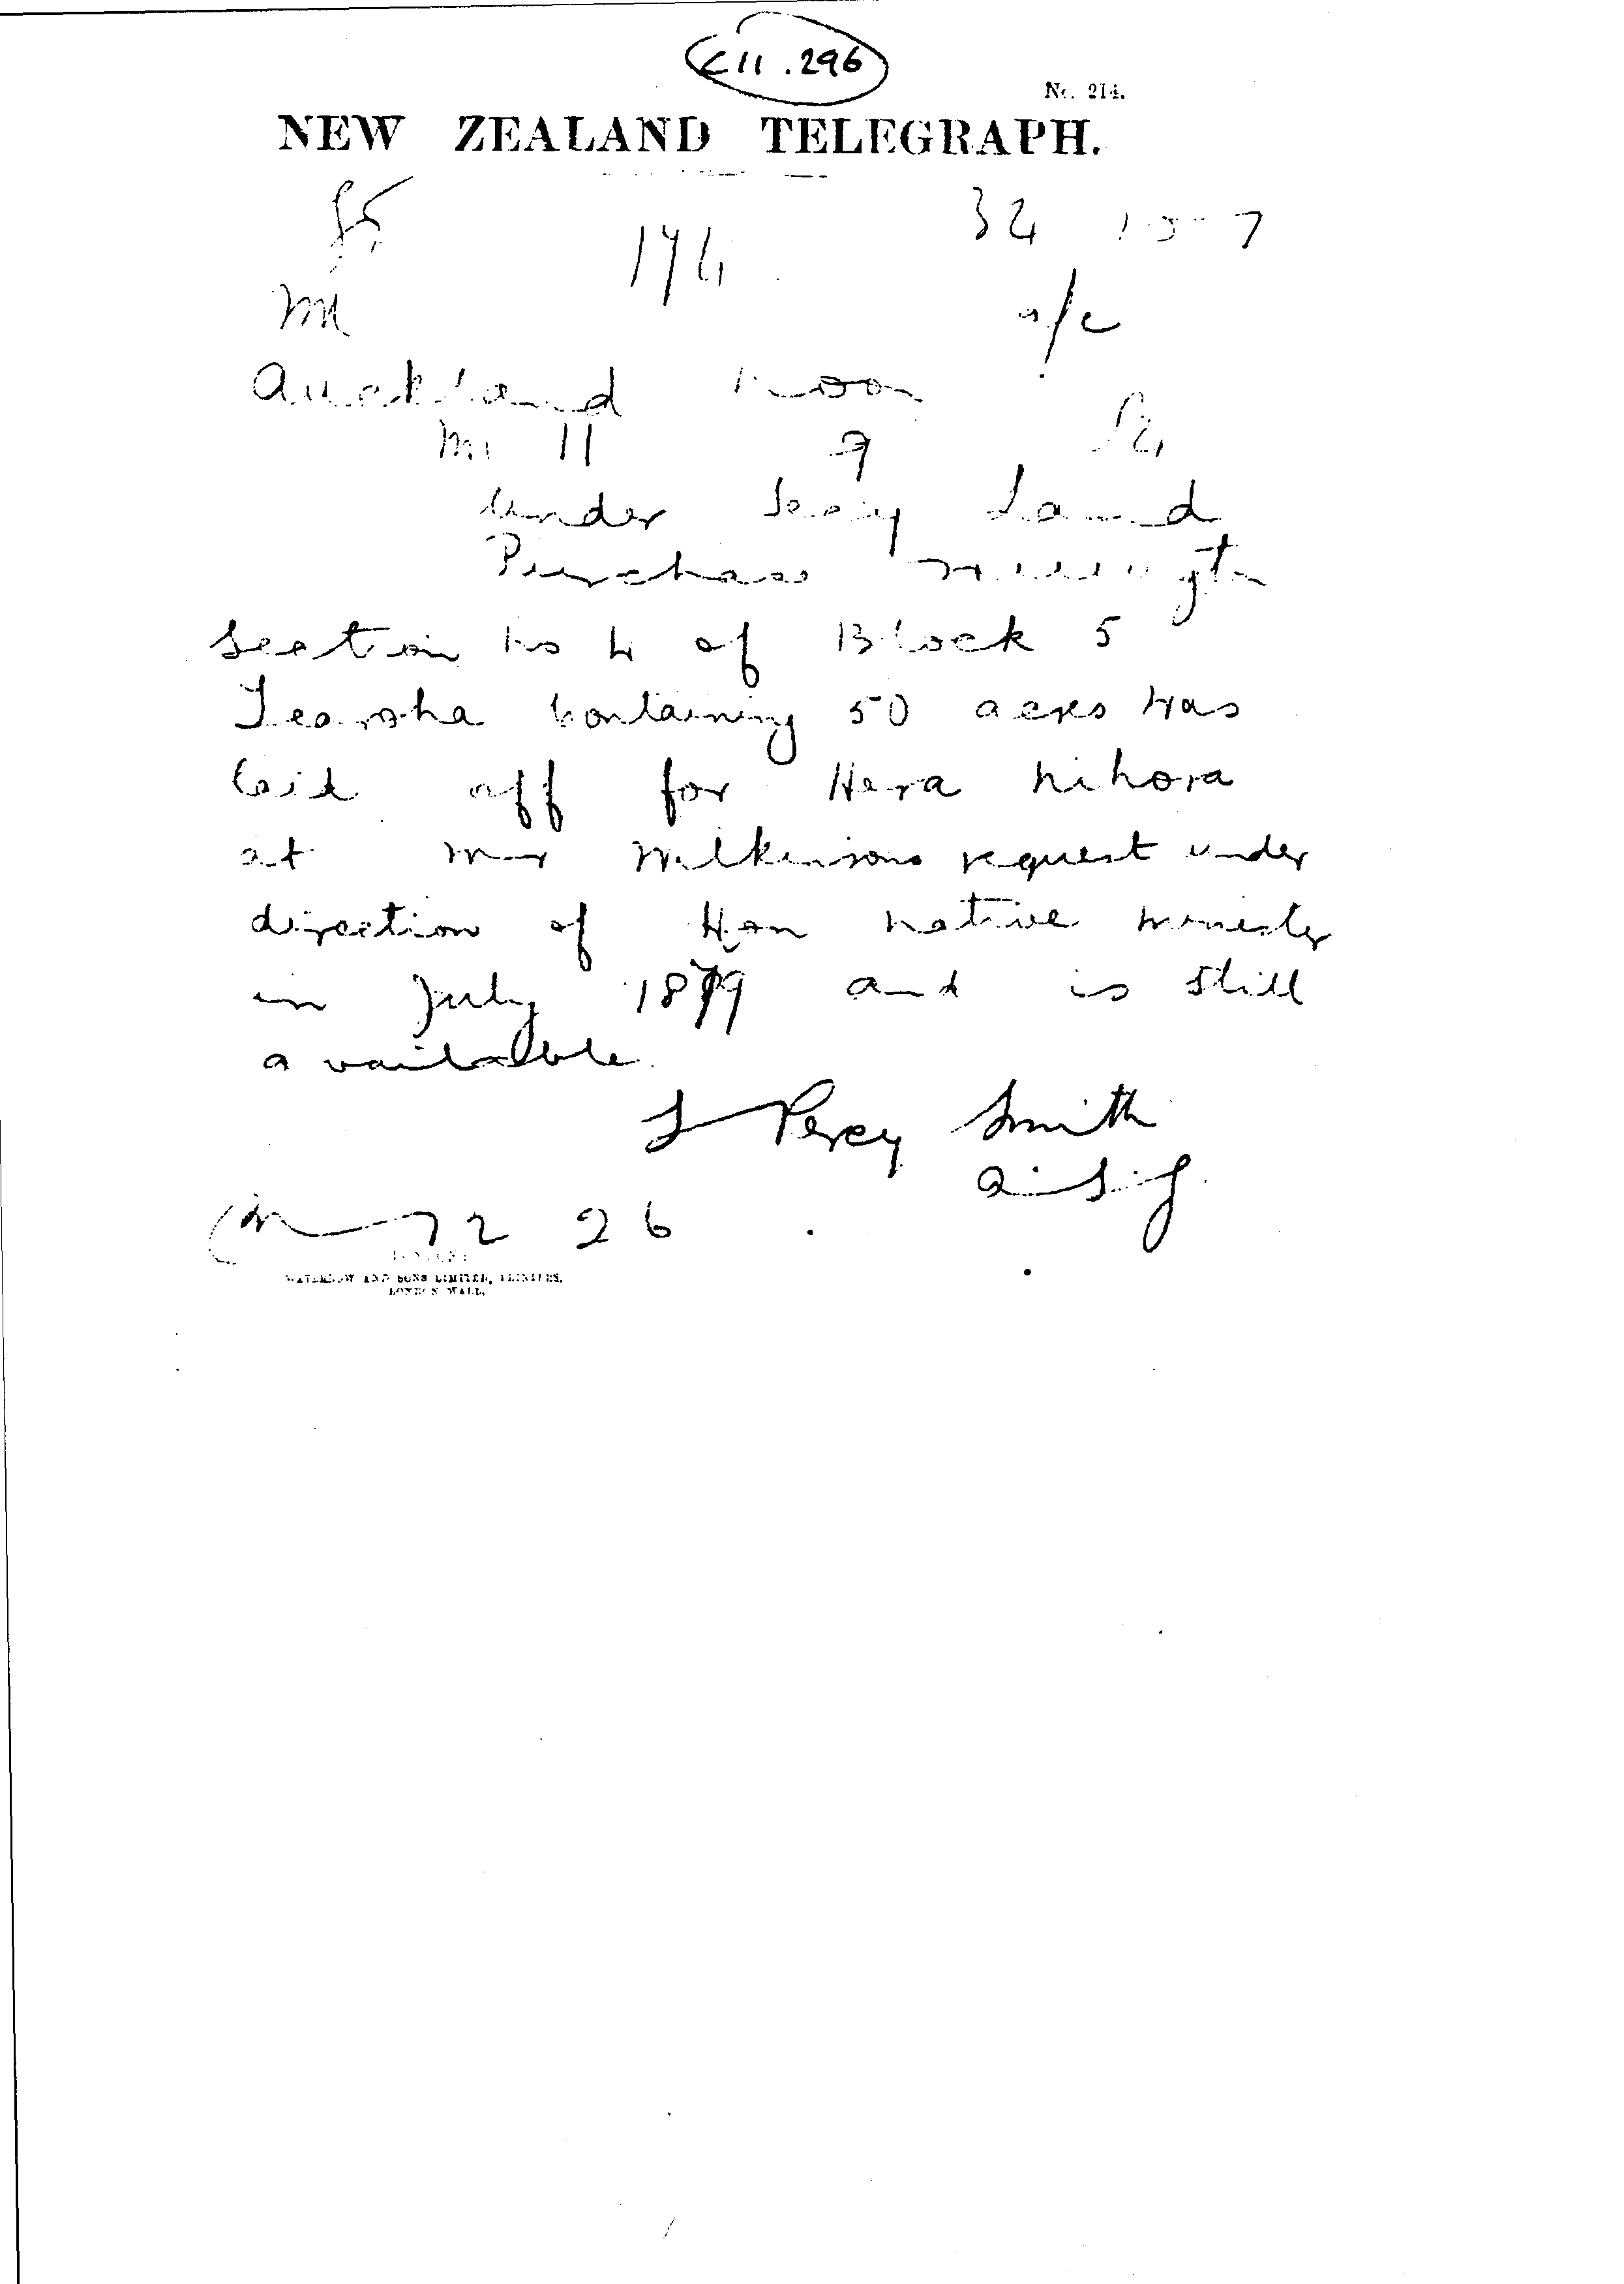 E11.296
No. 214.
NEW ZEALAND TELEGRAPH.
85
174 32
M a/c
Auckland noon
11 9
Under Secy Land
Purchase
Section No 4 of Block 5
Tearoha containing 50 acres was
laid off for Hera nihora
at Mr Wilkinsons request under
direction of Hon native minister
in July 1879 and is still
available.
S Percy Smith
26
WATERLOW AND SONS LIMITED, PRINTERS,
LONDON WALL.